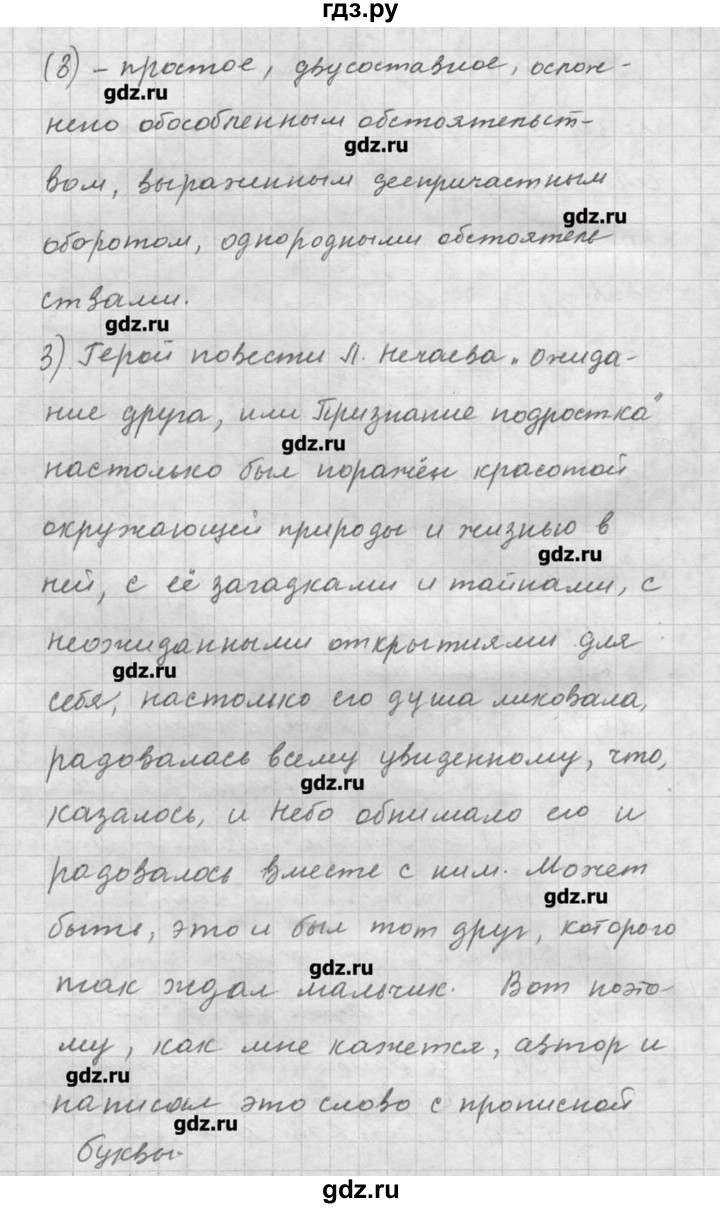 гдз.ру
(3) – простое, двусоставное, ослож-
gdz.ru
нено обособленным обстоятельст-
gdz.ru
вом, выраженным деепричастным
gdz.ru
оборотом, однородными обстоятель
ствами.
gdz.ru
3) Герой повести Л. Нечаева „Ожида-
ние друга, или Признание подростка"
gdz.ru
настолько был поражён красотой
окружающей природы и жизнью в
gdz.ru
ней, с её загадками и тайнами, с
неожиданными открытиями для
gdz.ru
себя, настолько его душа ликовала,
радовалась всему увиденному, что,
gdz.ru
казалось, и Небо обнимало его и
радовалось вместе с ним. Может
gdz.ru
быть, это и был тот друг, которого
gdz.ru
так ждал мальчик. Вот поэто-
му, как мне кажется, автор и
gdz.ru
написал это слово с прописной
gdz.ru
буквы.
gdz.ru